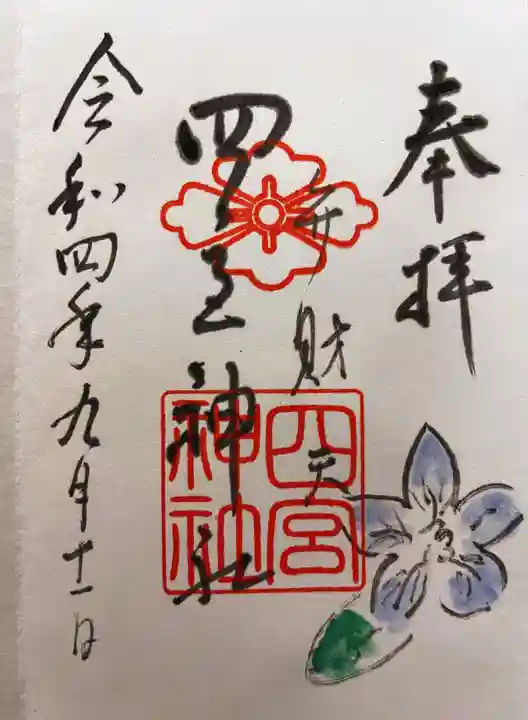 奉拝
弁財天
四宮神社
四宮
神社
令和四年九月十一日